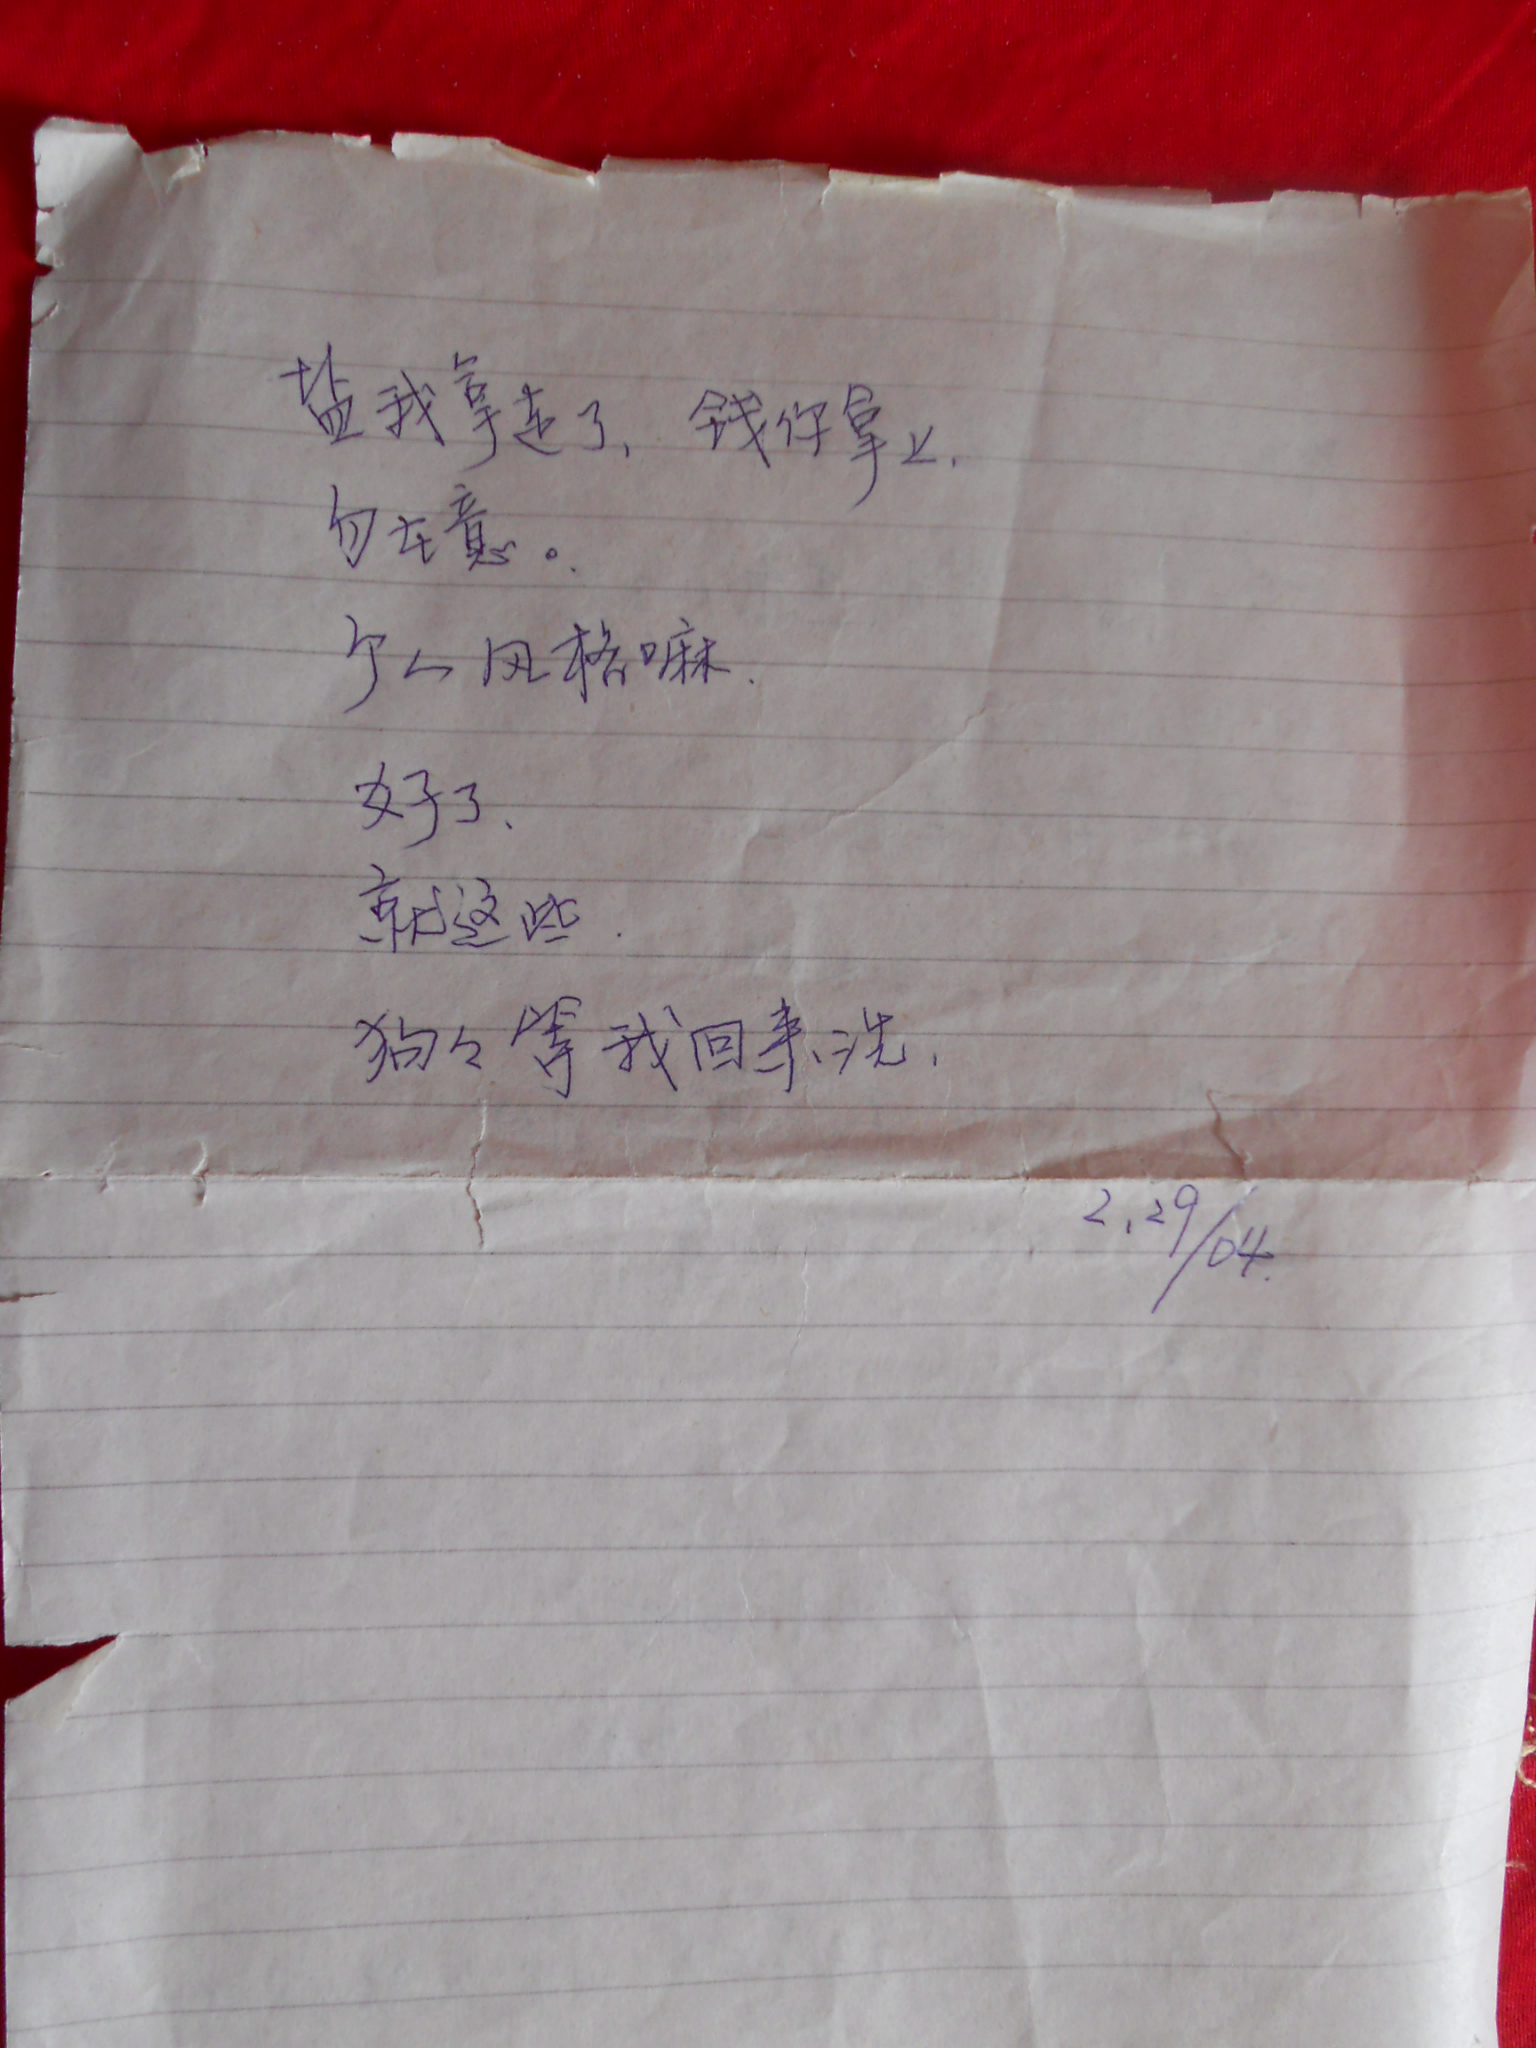 盐我拿走了，钱你拿上.
勿在意。.
个人风格嘛.
好了、
就这些.
狗々等我回来洗.
2.29/04.